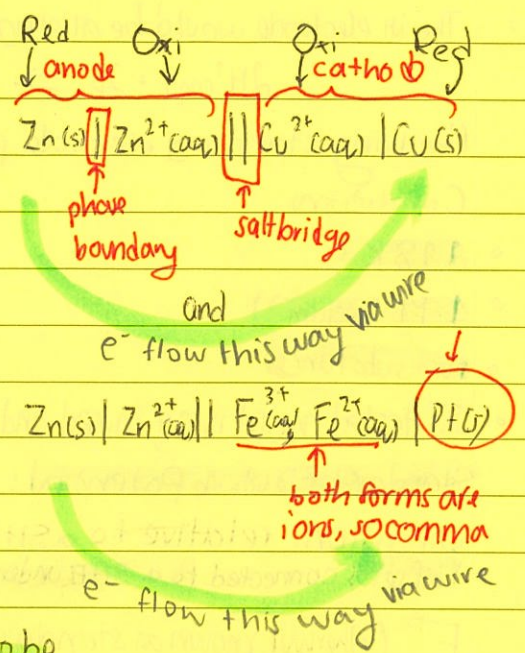 Red Oxi Oxi Red
anode cathode
Zn(s) | Zn²⁺(aq) || Cu²⁺(aq) | Cu(s)
phase
boundary
salt bridge
and
e⁻ flow this way via wire
Zn(s) | Zn²⁺(aq) || Fe³⁺(aq), Fe²⁺(aq) | Pt(s)
both forms are
ions, so comma
e⁻ flow this way via wire